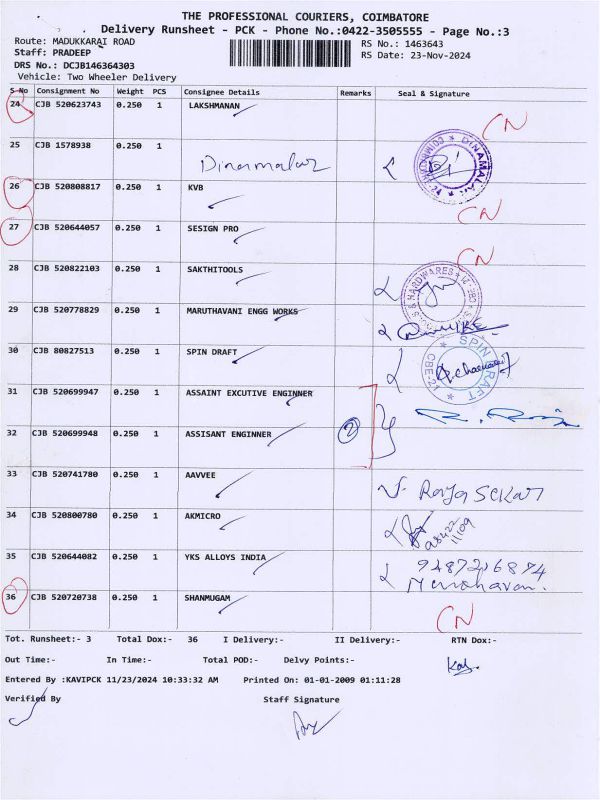 THE PROFESSIONAL COURIERS, COIMBATORE
Delivery Runsheet - PCK - Phone No.:0422-3505555 - Page No.:3
Route: MADUKKARAI ROAD
RS No.: 1463643
Staff: PRADEEP
RS Date: 23-Nov-2024
DRS No.: DCJB146364303
Vehicle: Two Wheeler Delivery
S No Consignment No Weight PCS Consignee Details Remarks Seal & Signature
24 CJB 520623743 0.250 1 LAKSHMANAN CN
25 CJB 1578938 0.250 1 Dinamalar DINAMALAR
26 CJB 520808817 0.250 1 KVB CN
27 CJB 520644057 0.250 1 SESIGN PRO CN
28 CJB 520822103 0.250 1 SAKTHITOOLS & HARDWARES
29 CJB 520778829 0.250 1 MARUTHAVANI ENGG WORKS
30 CJB 80827513 0.250 1 SPIN DRAFT SPIN DRAFT CBE-21
31 CJB 520699947 0.250 1 ASSAINT EXCUTIVE ENGINNER
32 CJB 520699948 0.250 1 ASSISANT ENGINNER 2
33 CJB 520741780 0.250 1 AAVVEE V. Raja Sekar
34 CJB 520800780 0.250 1 AKMICRO
35 CJB 520644082 0.250 1 YKS ALLOYS INDIA
Manoharan.
36 CJB 520720738 0.250 1 SHANMUGAM CN
Tot. Runsheet:- 3 Total Dox:- 36 I Delivery:- II Delivery:- RTN Dox:-
Out Time:- In Time:- Total POD:- Delvy Points:-
Entered By :KAVIPCK 11/23/2024 10:33:32 AM Printed On: 01-01-2009 01:11:28
Verified By Staff Signature